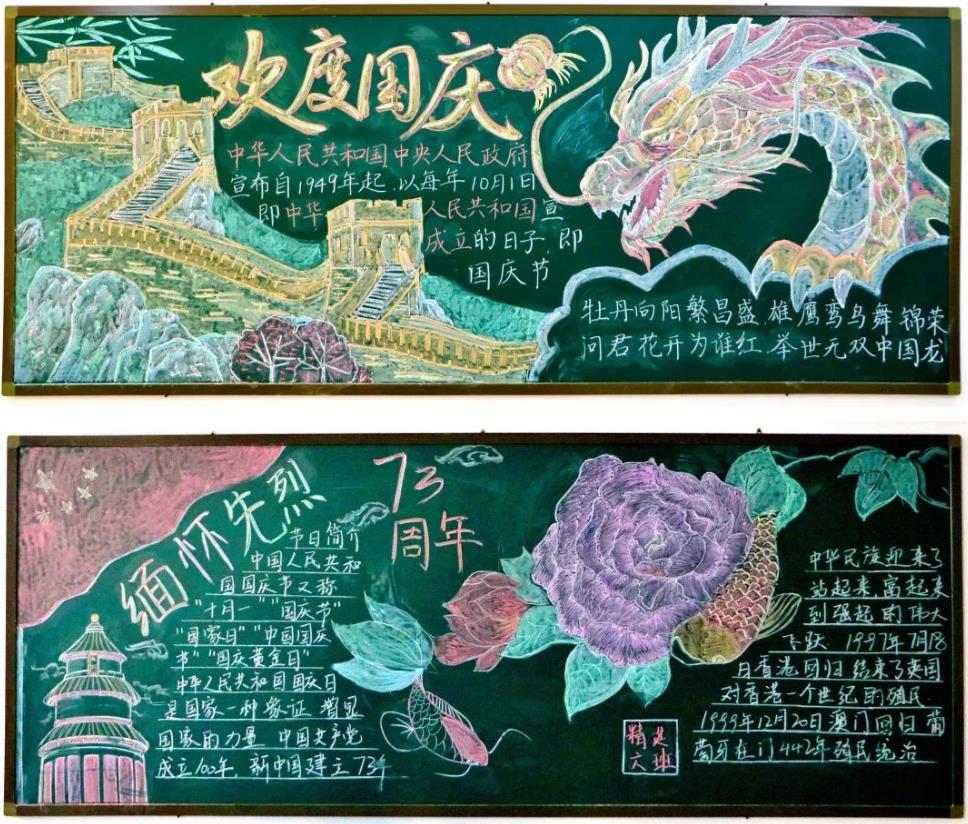 欢度国庆
中华人民共和国中央人民政府
宣布自1949年起.以每年10月1日
即中华人民共和国宣
成立的日子.即
国庆节
牡丹向阳繁昌盛.雄鹰鸾鸟舞锦荣
问君花开为谁红.举世无双中国龙
缅怀先烈
73
周年
节日简介
中国人民共和
国国庆节又称
"十月一""国庆节"
"国家日""中国国庆
节""国庆黄金日"
中华人民共和国国庆日
是国家一种象征 增显
国家的力量 中国共产党
成立100年.新中国建立73年
中华民族迎来了
站起来.富起来
到强起的伟大
飞跃 1997年7月8
日香港回归结束了英国
对香港一个世纪的殖民.
1999年12月20日澳门回归葡
萄牙在门442年殖民统治
精
六
班